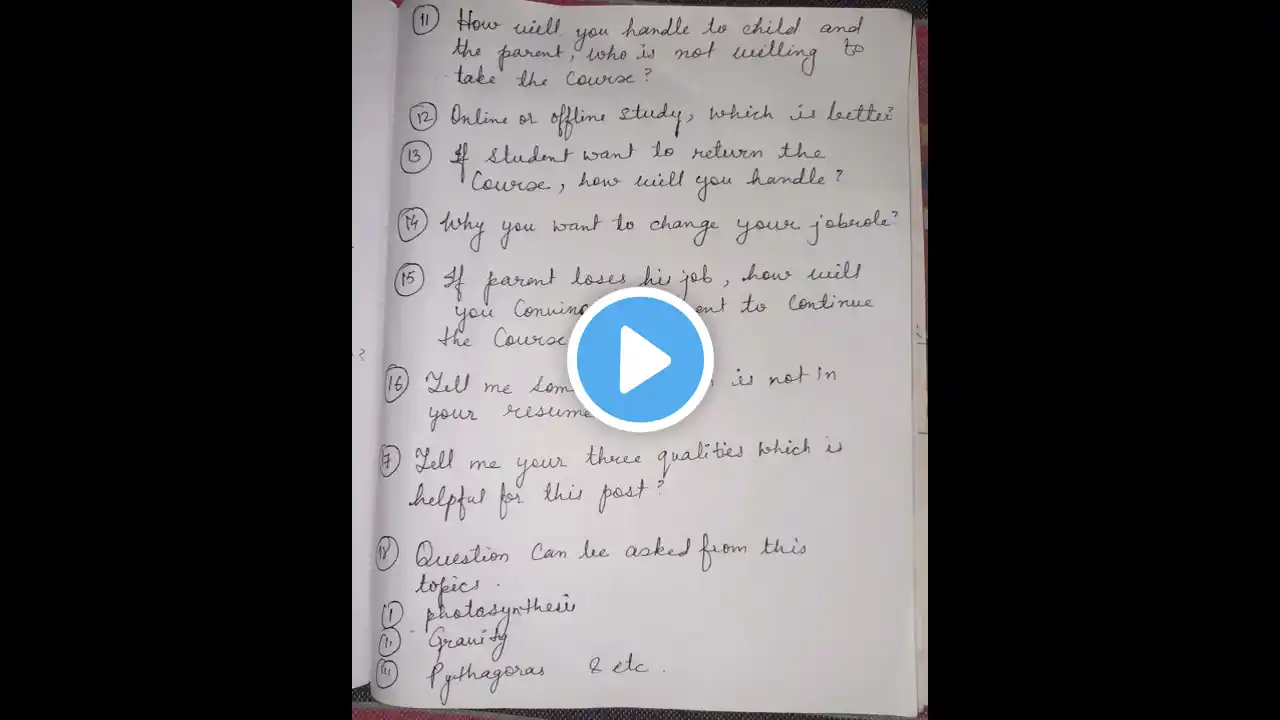 11 How will you handle to child and
the parent, who is not willing to
take the Course?
12 Online or offline study, which is better?
13 If student want to return the
Course, how will you handle?
14 Why you want to change your jobrole?
15 If parent loses his job, how will
you to continue
the Course
16 Tell me is not in
your resume
Tell me your three qualities which is
helpful for this post?
18 Question can be asked from this
topics.
photosynthesis
Gravity
Pythagoras & etc.